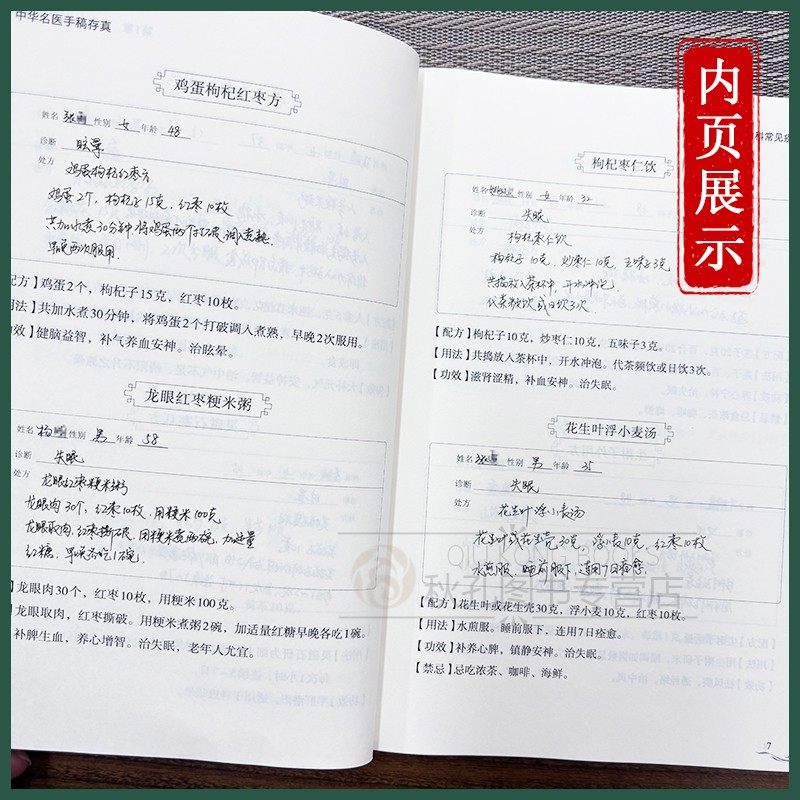 中华名医手稿存真
鸡蛋枸杞红枣方
姓名 张 性别 女 年龄 48
诊断 眩晕
处方 鸡蛋枸杞红枣方
鸡蛋2个，枸杞子15克，红枣10枚
共加水煮30分钟 将鸡蛋两个打破调入煮熟
早晚两次服用
配方】鸡蛋2个，枸杞子15克，红枣10枚。
用法】共加水煮30分钟，将鸡蛋2个打破调入煮熟，早晚2次服用。
功效】健脑益智，补气养血安神。治眩晕。
龙眼红枣粳米粥
姓名 杨 性别 男 年龄 58
诊断 失眠
处方 龙眼红枣粳米粥
龙眼肉30个，红枣10枚，用粳米100克
龙眼取肉，红枣撕破，用粳米煮两碗，加适量
红糖，早晚各吃1碗。
】龙眼肉30个，红枣10枚，用粳米100克。
】龙眼取肉，红枣撕破。用粳米煮粥2碗，加适量红糖早晚各吃1碗。
】补脾生血，养心增智。治失眠，老年人尤宜。
内页展示
科常见疾
枸杞枣仁饮
姓名 性别 女 年龄 32
诊断 失眠
处方 枸杞枣仁饮
枸杞子10克，炒枣仁10克，五味子3克
共捣放入茶杯中，开水冲泡
代茶频饮或日饮3次
【配方】枸杞子10克，炒枣仁10克，五味子3克。
【用法】共捣放入茶杯中，开水冲泡。代茶频饮或日饮3次。
【功效】滋肾涩精，补血安神。治失眠。
花生叶浮小麦汤
姓名 张 性别 男 年龄 35
诊断 失眠
处方 花生叶浮小麦汤
花生叶或花生壳30克，浮小麦10克，红枣10枚
水煎服，睡前服下，连用7日痊愈
秋孔图书专营店
【配方】花生叶或花生壳30克，浮小麦10克，红枣10枚。
【用法】水煎服。睡前服下，连用7日痊愈。
【功效】补养心脾，镇静安神。治失眠。
【禁忌】忌吃浓茶、咖啡、海鲜。
7